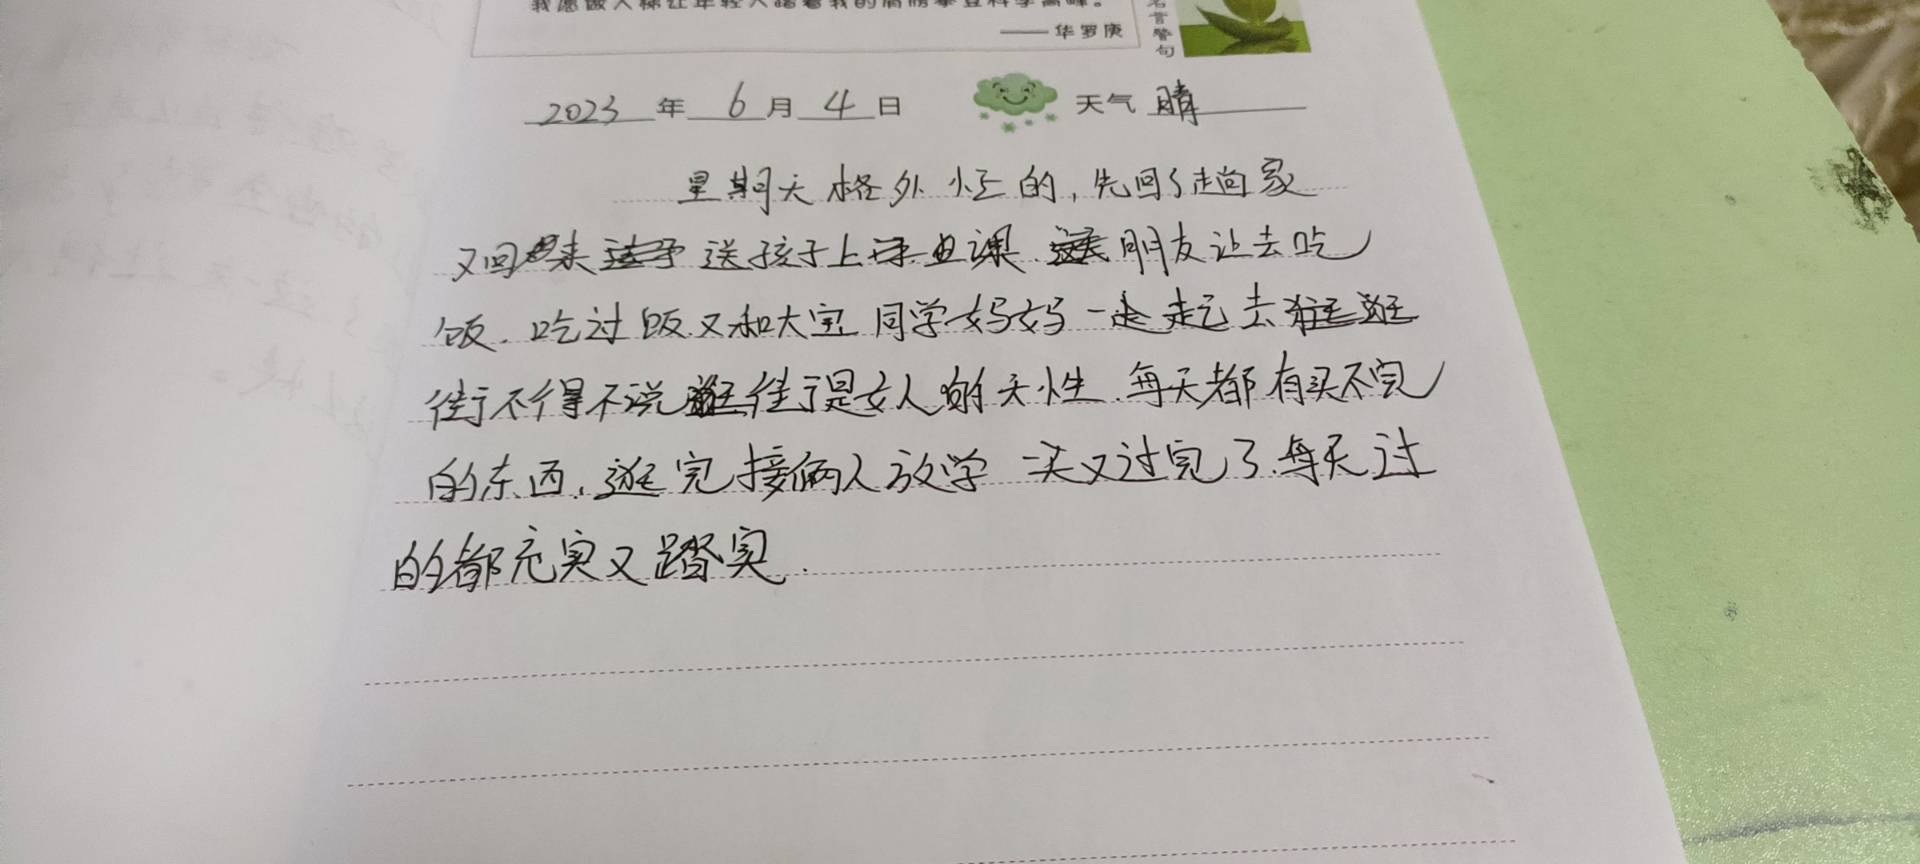 我愿做人梯让年轻人踏着我的肩膀攀登科学高峰。
——华罗庚
名言警句
2023年6月4日 天气 晴
星期天格外忙的,先回了趟家
又回来送孩子上课.朋友让去吃
饭.吃过饭又和大宝同学妈妈一起去逛
街不得不说逛街是女人的天性.每天都有买不完
的东西,逛完接俩人放学一天又过完了.每天过
的都充实又踏实.